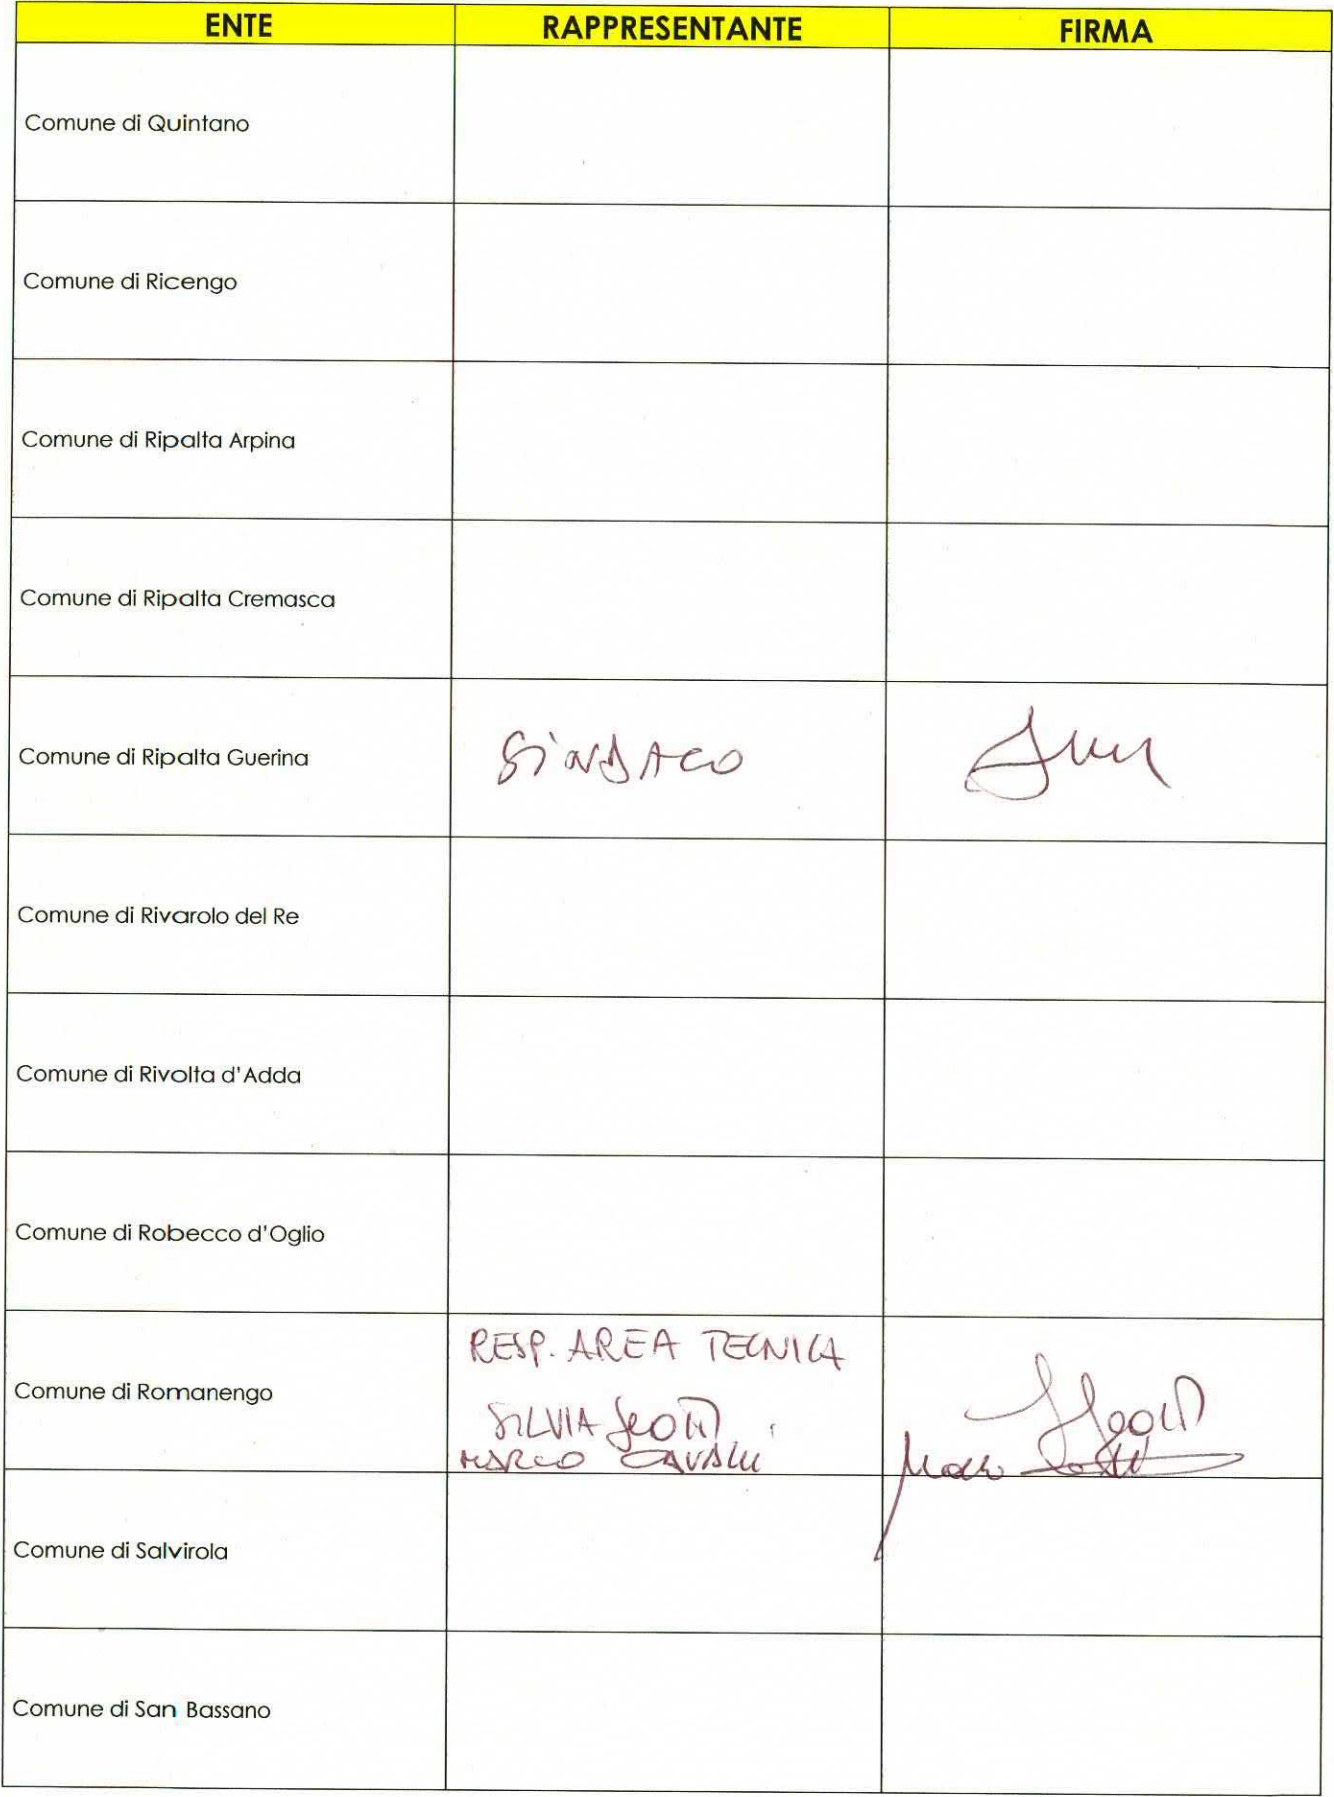 ENTE RAPPRESENTANTE FIRMA
Comune di Quintano
Comune di Ricengo
Comune di Ripalta Arpina
Comune di Ripalta Cremasca
Comune di Ripalta Guerina SINDACO
Comune di Rivarolo del Re
Comune di Rivolta d'Adda
Comune di Robecco d'Oglio
RESP. AREA TECNICA
Comune di Romanengo
SILVIA
MARCO CAVALLI Marco
Comune di Salvirola
Comune di San Bassano